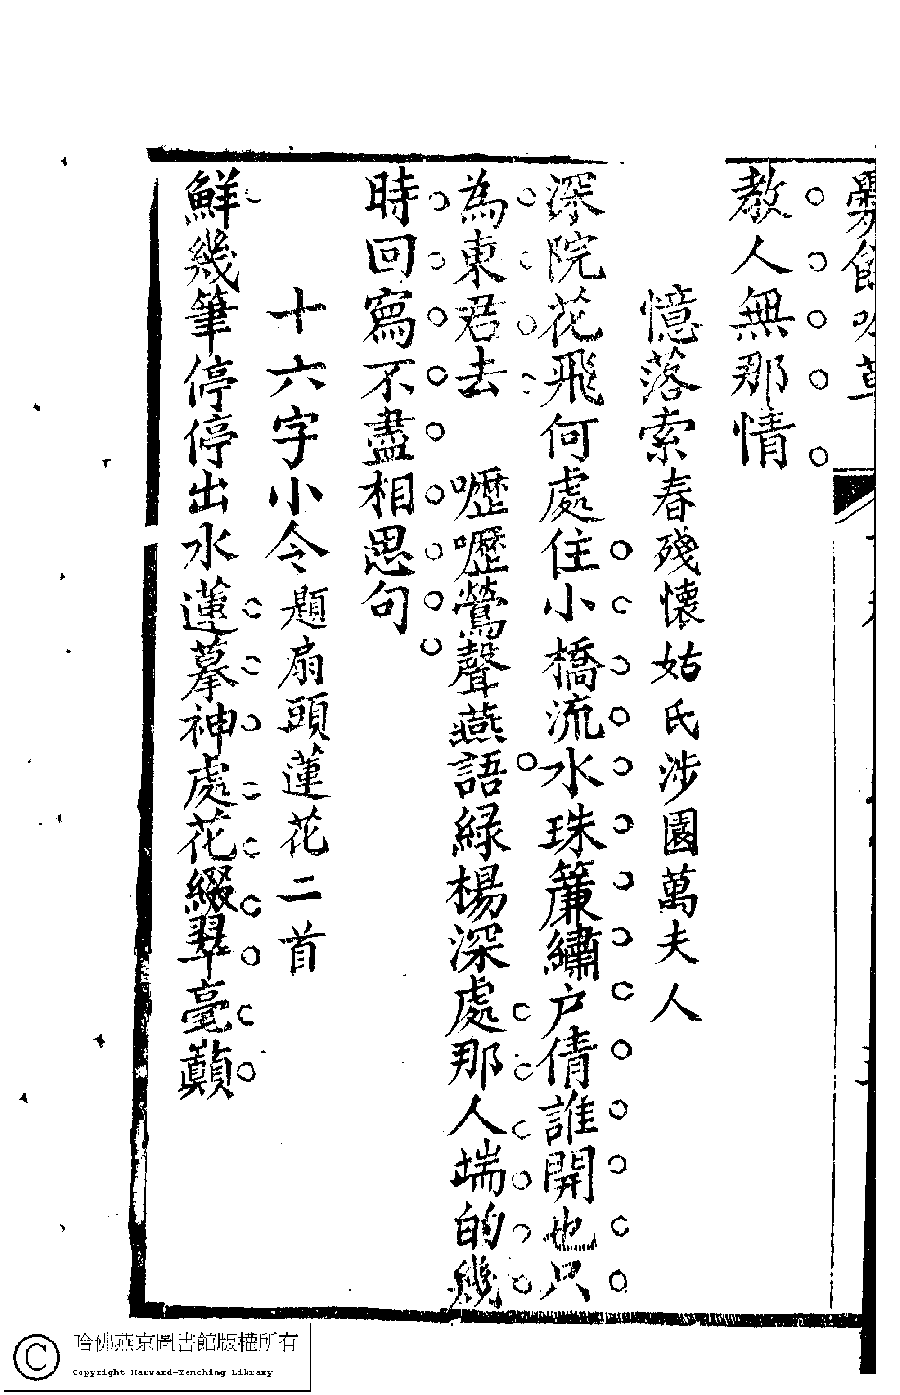 教人無那情
憶落索春殘懷姑氏涉園萬夫人
深院花飛何處住小橋流水珠簾繡户倩誰開也只
為東君去　嚦嚦鶯聲燕語綠楊深處那人端的幾
時回寫不盡相思句
十六字小令題扇頭蓮花二首
鮮幾筆停停出水蓮摹神處花綴翠毫顛
哈佛燕京圖書館版權所有
Copyright Harvard-Yenching Library